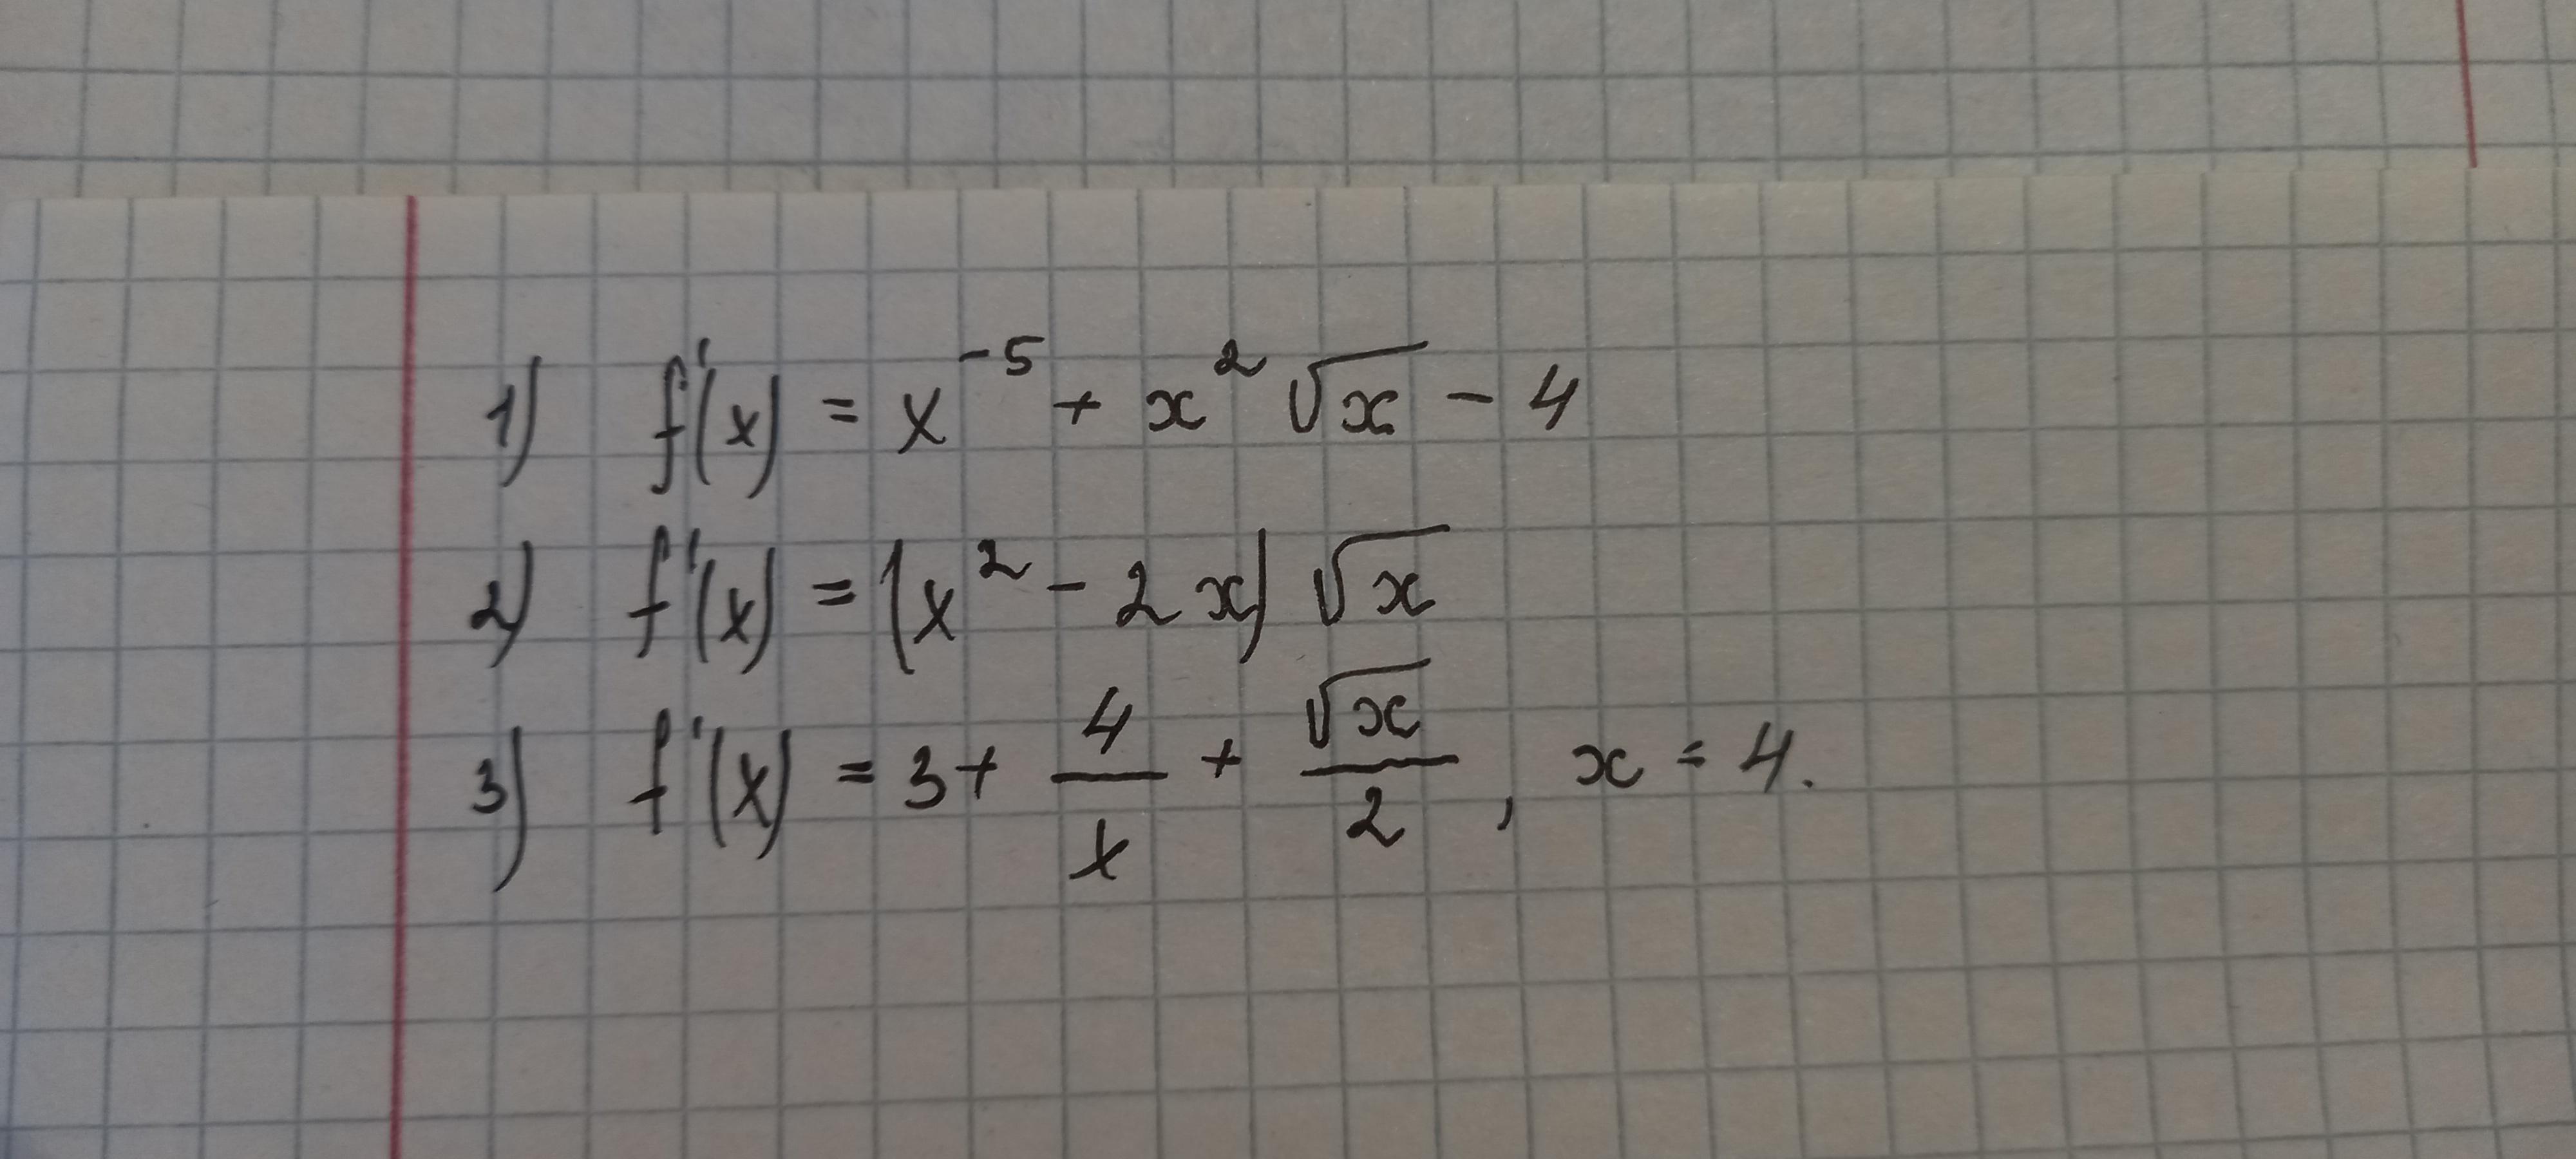 1) f'(x) = x⁻⁵ + x² √x - 4
2) f'(x) = (x² - 2x) √x
3) f'(x) = 3 + 4/x + √x/2, x = 4.